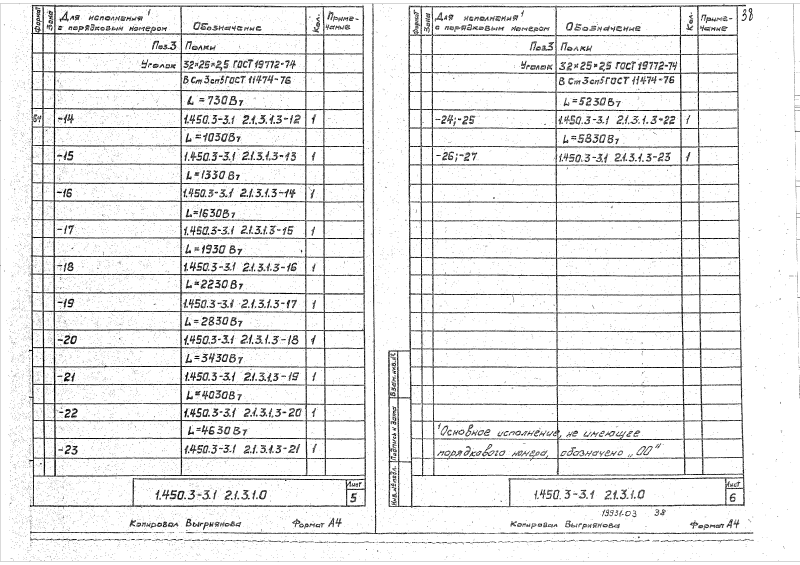 38
Формат Зона Для исполнения¹ с порядковым номером Обозначение Кол. Приме- чание
Поз.3 Полки
Уголок 32×25×2,5 ГОСТ 19772-74
В Ст 3сп5 ГОСТ 11474-76
L=730 В7
-14 1.450.3-3.1 2.1.3.1.3-12 1
L=1030В7
-15 1.450.3-3.1 2.1.3.1.3-13 1
L=1330 В7
-16 1.450.3-3.1 2.1.3.1.3-14 1
L=1630В7
-17 1.450.3-3.1 2.1.3.1.3-15 1
L=1930 В7
-18 1.450.3-3.1 2.1.3.1.3-16 1
L=2230В7
-19 1.450.3-3.1 2.1.3.1.3-17 1
L=2830В7
-20 1.450.3-3.1 2.1.3.1.3-18 1
L=3430В7
-21 1.450.3-3.1 2.1.3.1.3-19 1
L=4030В7
-22 1.450.3-3.1 2.1.3.1.3-20 1
L=4630В7
-23 1.450.3-3.1 2.1.3.1.3-21 1
1.450.3-3.1 2.1.3.1.0 Лист 5
Копировал Выгриянова Формат А4
Формат Зона Для исполнения¹ с порядковым номером Обозначение Кол. Приме- чание
Поз.3 Полки
Уголок 32×25×2,5 ГОСТ 19772-74
В Ст 3сп5 ГОСТ 11474-76
L=5230В7
-24;-25 1.450.3-3.1 2.1.3.1.3-22 1
L=5830В7
-26;-27 1.450.3-3.1 2.1.3.1.3-23 1
¹Основное исполнение, не имеющее
порядкового номера, обозначено „00"
Инв.№подл. Подпись и дата Взам.инв.№
1.450.3-3.1 2.1.3.1.0 Лист 6
19931-03 38
Копировал Выгриянова Формат А4